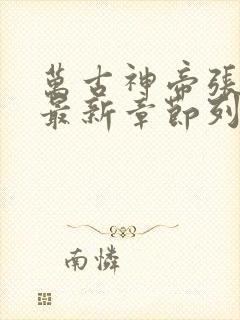 萬古神帝張
最新章節列
南憐